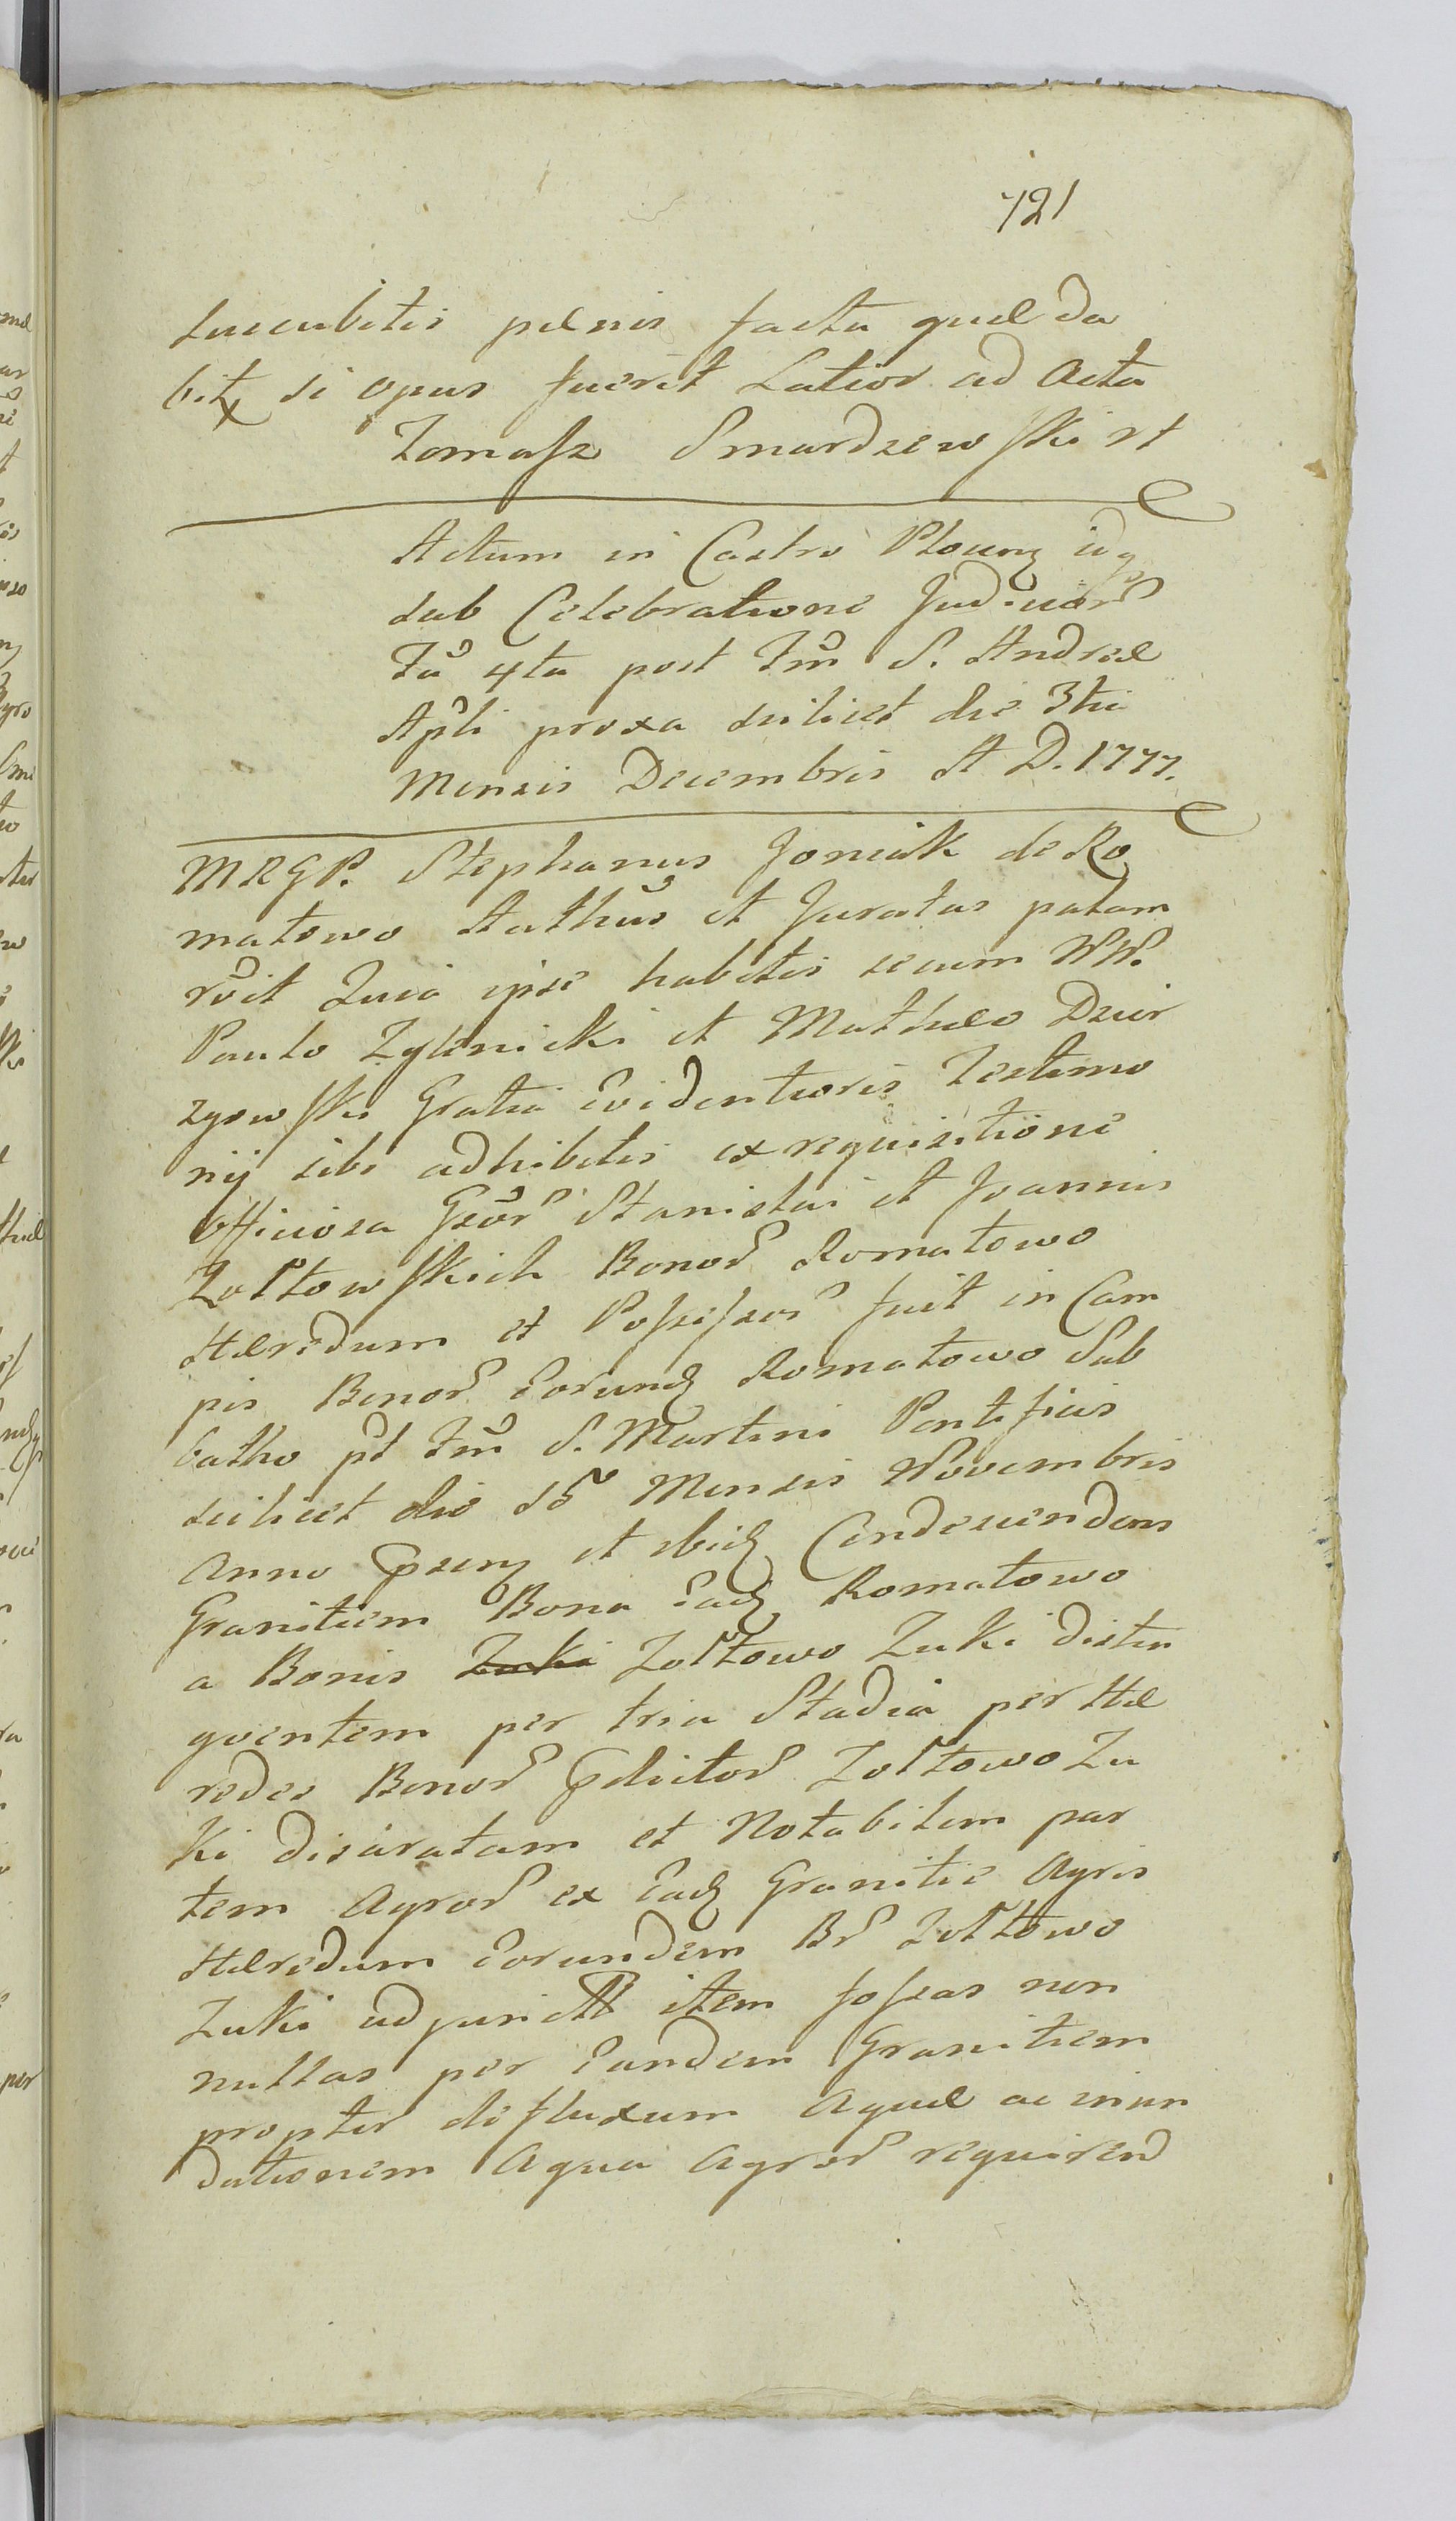 721
succubitis pænis facta quæ da
bit si opus fuerit Latior ad Acta
Tomasz Smardzewski rt
Actum in Castro Plocen
sub Celebratione Judicior
Fa 4ta post Fm S. Andreæ
Apli proxa scilicet die 3tia
Mensis Decembris A D. 1777.
MRGP. Stephanus Joniak de Ro
matowo Authus et Juratus palam
rvit Quia ipse habitis secum NN.
Paulo Zglinicki et Mathæo Dzier
zgowski Gratia Evidentioris Testimo
nij sibi adhibitis ex requisitione
officiosa Gsor Stanislai et Joannis
Zołtowskich Bonor Romatowo
Hæredum et Possessor fuit in Cam
pis Bonor Eorund Romatowo Sab
batho pt Fm S. Martini Pontificis
scilicet die 15 Mensis Novembris
Anno psen et ibid Condescendens
Granitiem Bona Ead Romatowo
a Bonis Zuki Zołtowo Zuki distin
gventem per tria Stadia per Hæ
redes Bonor pdictor Zołtowo Zu
ki disaratam et Notabilem par
tem Agror ex Ead Granitie Agris
Hæredum Eorundem Br Zołtowo
Zuki adjunctt item fossas non
nullas per Eandem Granitiem
propter defluxum Aquæ ac inun
dationem Aqua Agror requirend